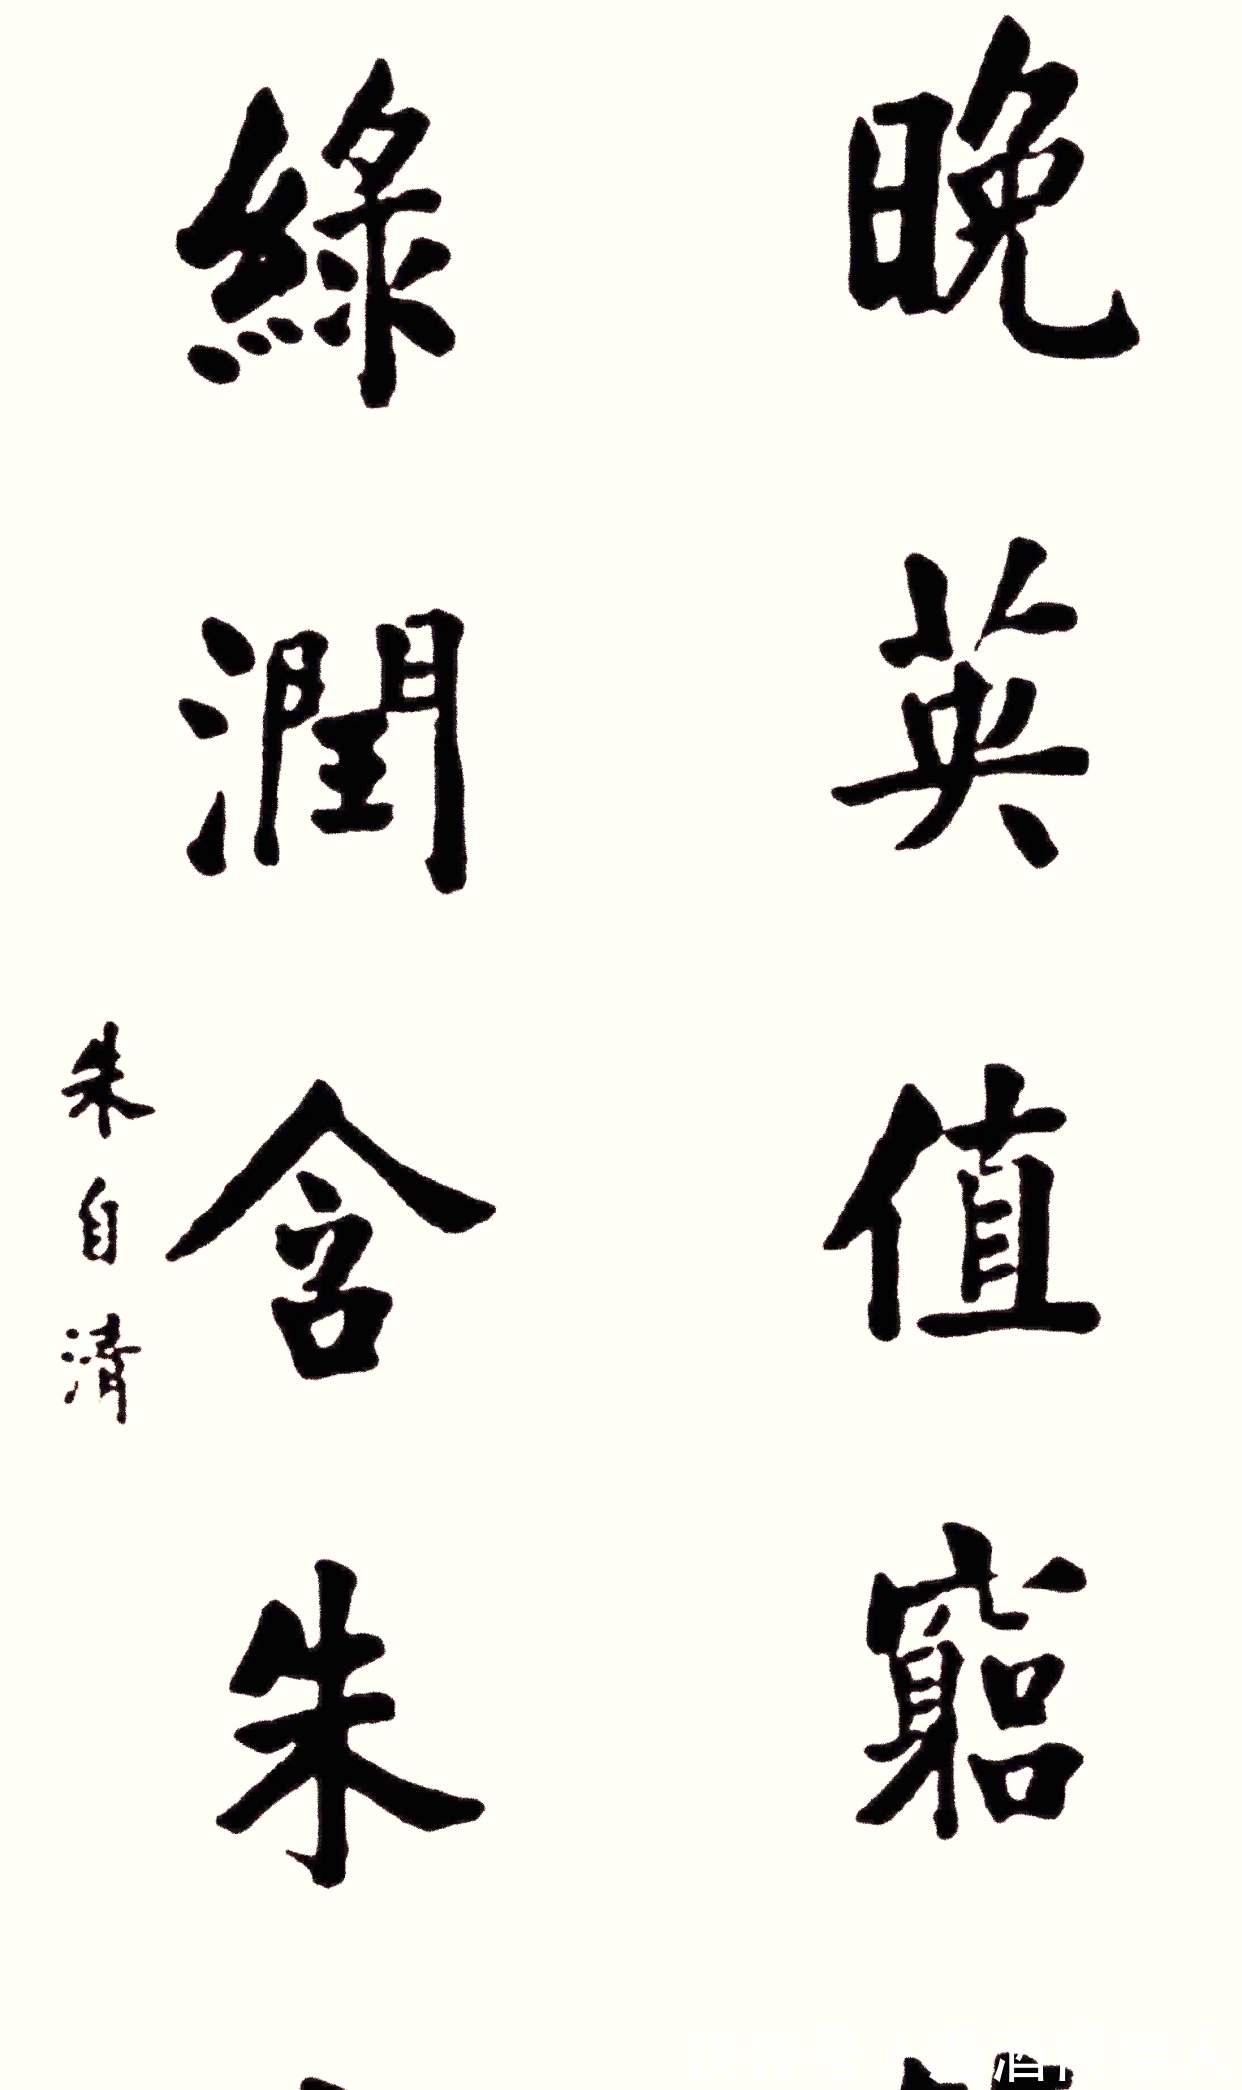 晚英值窮
綠潤含朱
朱自清
酒